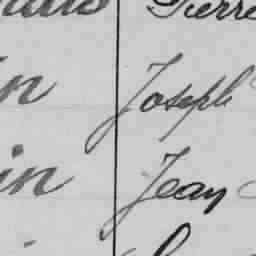 Pierre
in Joseph
in Jean